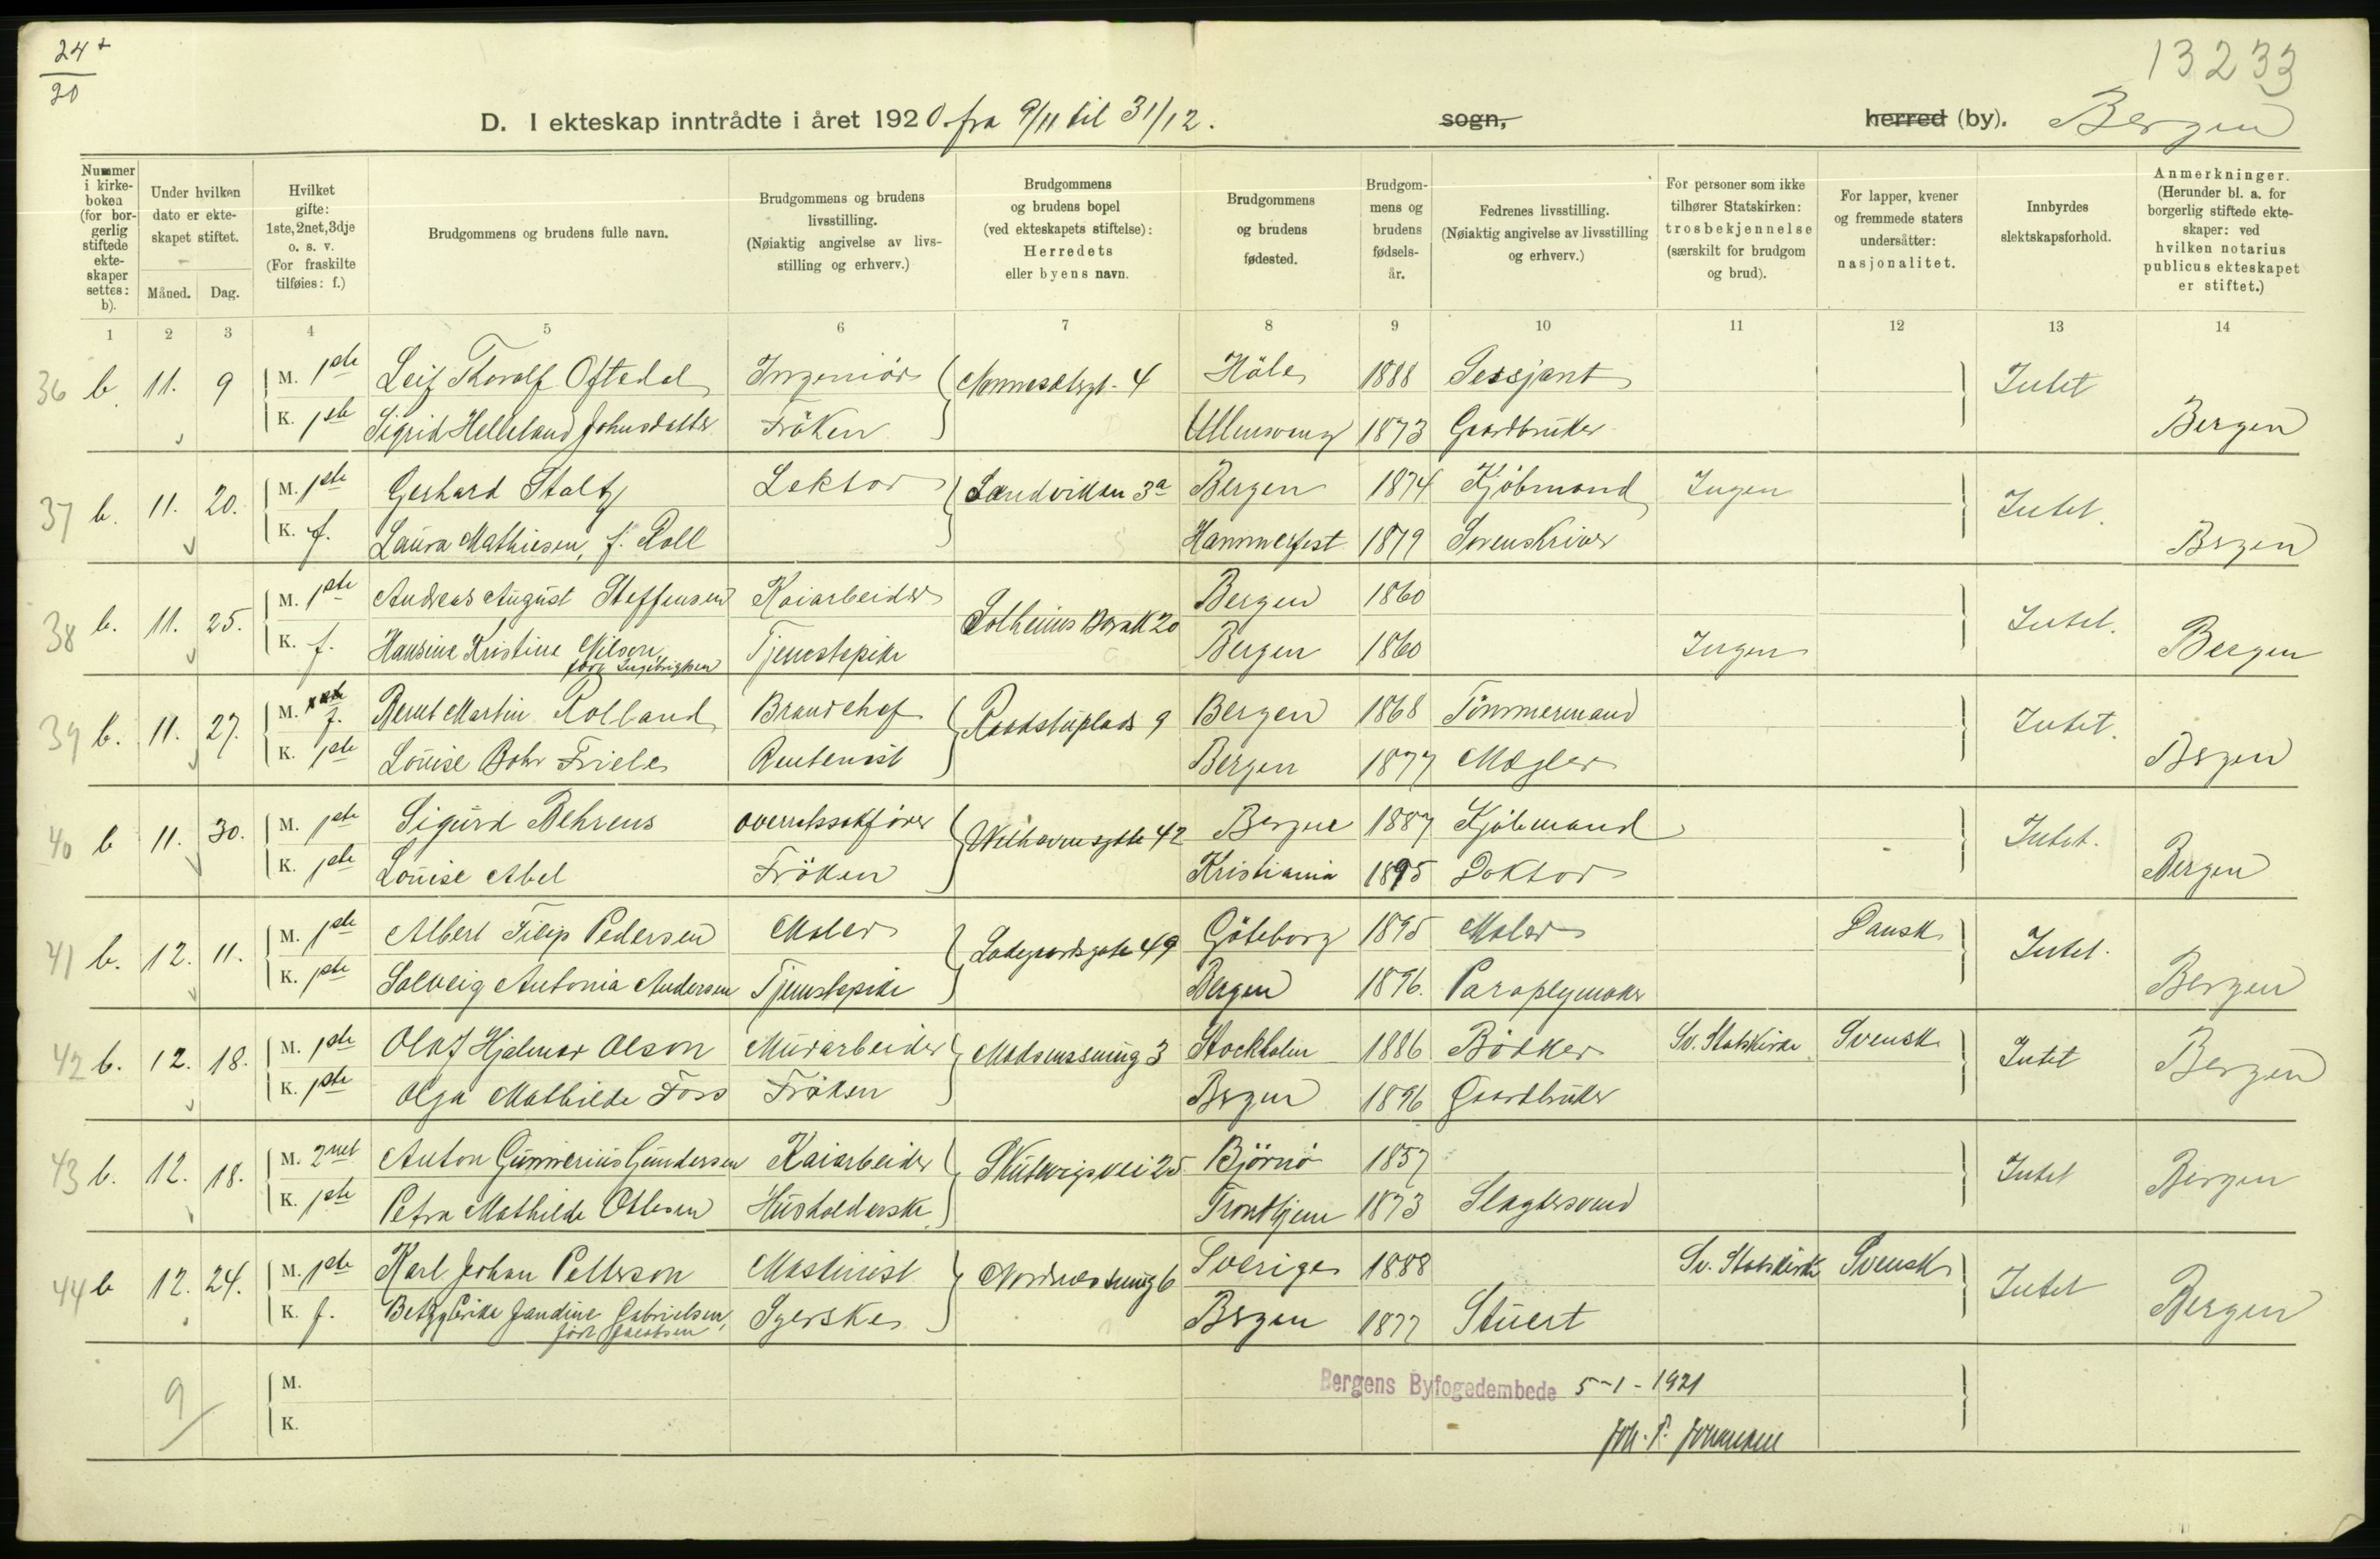 24 +
20
13233
D. I ekteskap inntrådte i året 1920. fra 9/11 til 31/12. sogn, herred (by). Bergen
Nummer i kirkeboken (for borgerlig stiftede ekteskaper settes: b).
Under hvilken dato er ekteskapet stiftet.
Måned. Dag.
Hvilket gifte: 1ste, 2net, 3dje o. s. v. (For fraskilte tilføies: f.)
Brudgommens og brudens fulle navn.
Brudgommens og brudens livsstilling. (Nøiaktig angivelse av livsstilling og erhverv.)
Brudgommens og brudens bopel (ved ekteskapets stiftelse): Herredets eller byens navn.
Brudgommens og brudens fødested.
Brudgommens og brudens fødselsår.
Fedrenes livsstilling. (Nøiaktig angivelse av livsstilling og erhverv.)
For personer som ikke tilhører Statskirken: trosbekjennelse (særskilt for brudgom og brud).
For lapper, kvener og fremmede staters undersåtter: nasjonalitet.
Innbyrdes slektskapsforhold.
Anmerkninger. (Herunder bl. a. for borgerlig stiftede ekteskaper: ved hvilken notarius publicus ekteskapet er stiftet.)
1 2 3 4 5 6 7 8 9 10 11 12 13 14
36 b. 11. 9 M. 1ste Leif Thorolf Oftedal Ingeniør 4 Höle 1888 Sersjant Intet
K. 1ste Sigrid Helleland Johnsdatter Fröken Ullensvang 1873 Gaardbruker Bergen
37 b. 11. 20. M. 1ste Gerhard Stoltz Lektor Sandviken 3a Bergen 1874 Kjöbmand Ingen Intet.
K. f. Laura Mathiesen, f. Roll Hammerfest 1879 Sorenskriver Bergen
38 b. 11. 25. M. 1ste Andreas August Steffensen Kaiarbeider Solheims 20 Bergen 1860 Intet.
K. f. Hansine Kristine Nilsen, født Ingebrigtsen Tjenestepike Bergen 1860 Ingen Bergen
39 b. 11. 27. M. f. Bernt Martin Rolland Brandchef Raadstuplads 9 Bergen 1868 Tömmermand Intet.
K. 1ste Louise Bohr Friele Rentenist Bergen 1877 Mægler Bergen
40 b 11. 30. M. 1ste Sigurd Behrens overretssakfører Welhavensgate 42 Bergen 1887 Kjöbmand Intet.
K. 1ste Louise Abel Fröken Kristiania 1895 Doktor Bergen
41 b. 12. 11. M. 1ste Albert Filip Pedersen Maler Ladegaardsgate 49 Göteborg 1895 Maler Dansk Intet.
K. 1ste Solveig Antonia Andersen Tjenestepike Bergen 1896. Paraplymaker Bergen
42 b. 12. 18. M. 1ste Olaf Hjalmar Olson Murarbeider 3 Stockholm 1886 Bödker Sv. Statskirke Svensk Intet Bergen
K. 1ste Olga Mathilde Foss Fröken Bergen 1896 Gaardbruker
43 b. 12. 18. M. 2net Anton Gunnerius Gundersen Kaiarbeider Skutevigsvei 25 Björnö 1857 Intet Bergen
K. 1ste Petra Mathilde Ottesen Husholderske Trondhjem 1873 Slagtersvend
44 b 12. 24. M. 1ste Karl Johan Petterson Maskinist Nordnessmug 6 Sverige 1888 Sv. Statskirke Svensk Intet Bergen
K. f. Betzy Erika Jandine Gabrielsen, født Jacobsen Syerske Bergen 1877 Stuert
9 M.
K.
Bergens Byfogedembede 5-1-1921
Joh. P. Johannesen